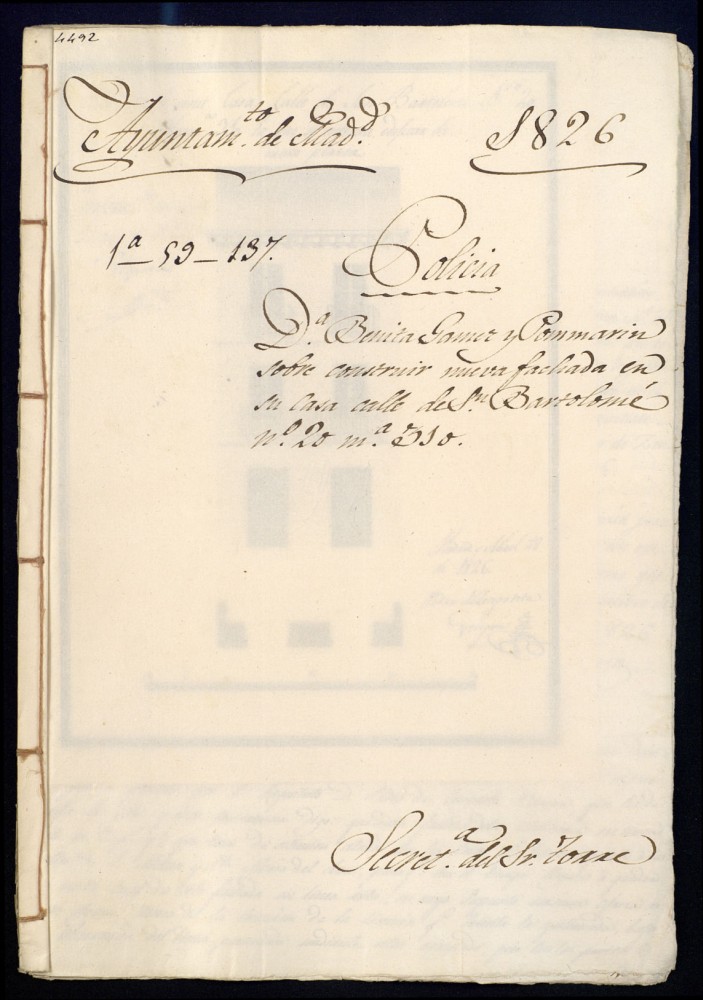 4492
Ayuntam.to de Mad.d
1826
1a — 59 — 137.
Policia
D.a Benita Gomez y Pommarin
sobre construir nueva fachada en
su Casa calle de Sn. Bartolomé
nº. 20 m.a 310.
Secret.a del Sr. Torre